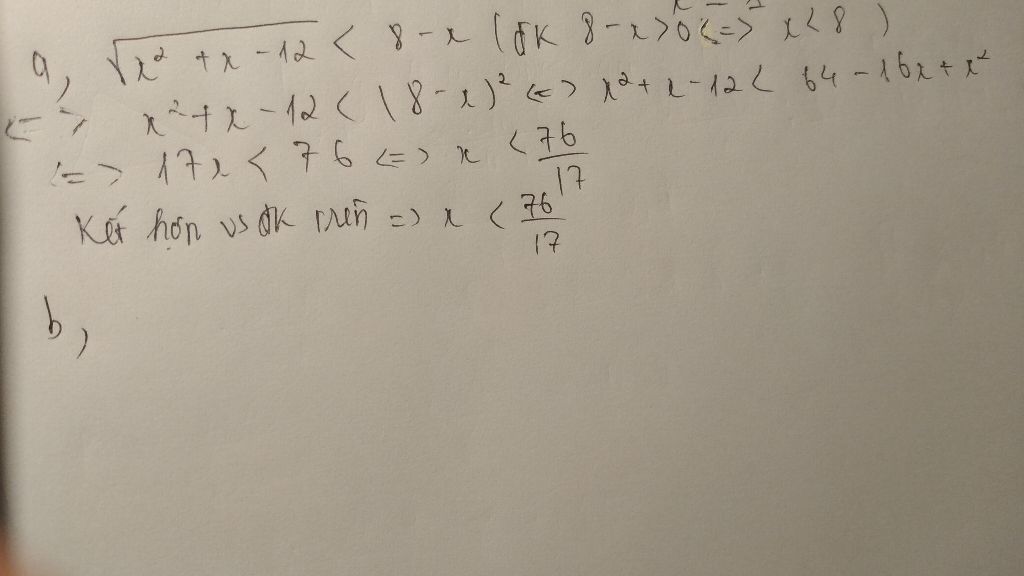 a, √x² + x - 12 < 8 - x (đK 8 - x > 0 <=> x < 8 )
<=> x² + x - 12 < (8 - x)² <=> x² + x - 12 < 64 - 16x + x²
<=> 17x < 76 <=> x < 76/17
Kết hợp vs đK trên => x < 76/17
b,